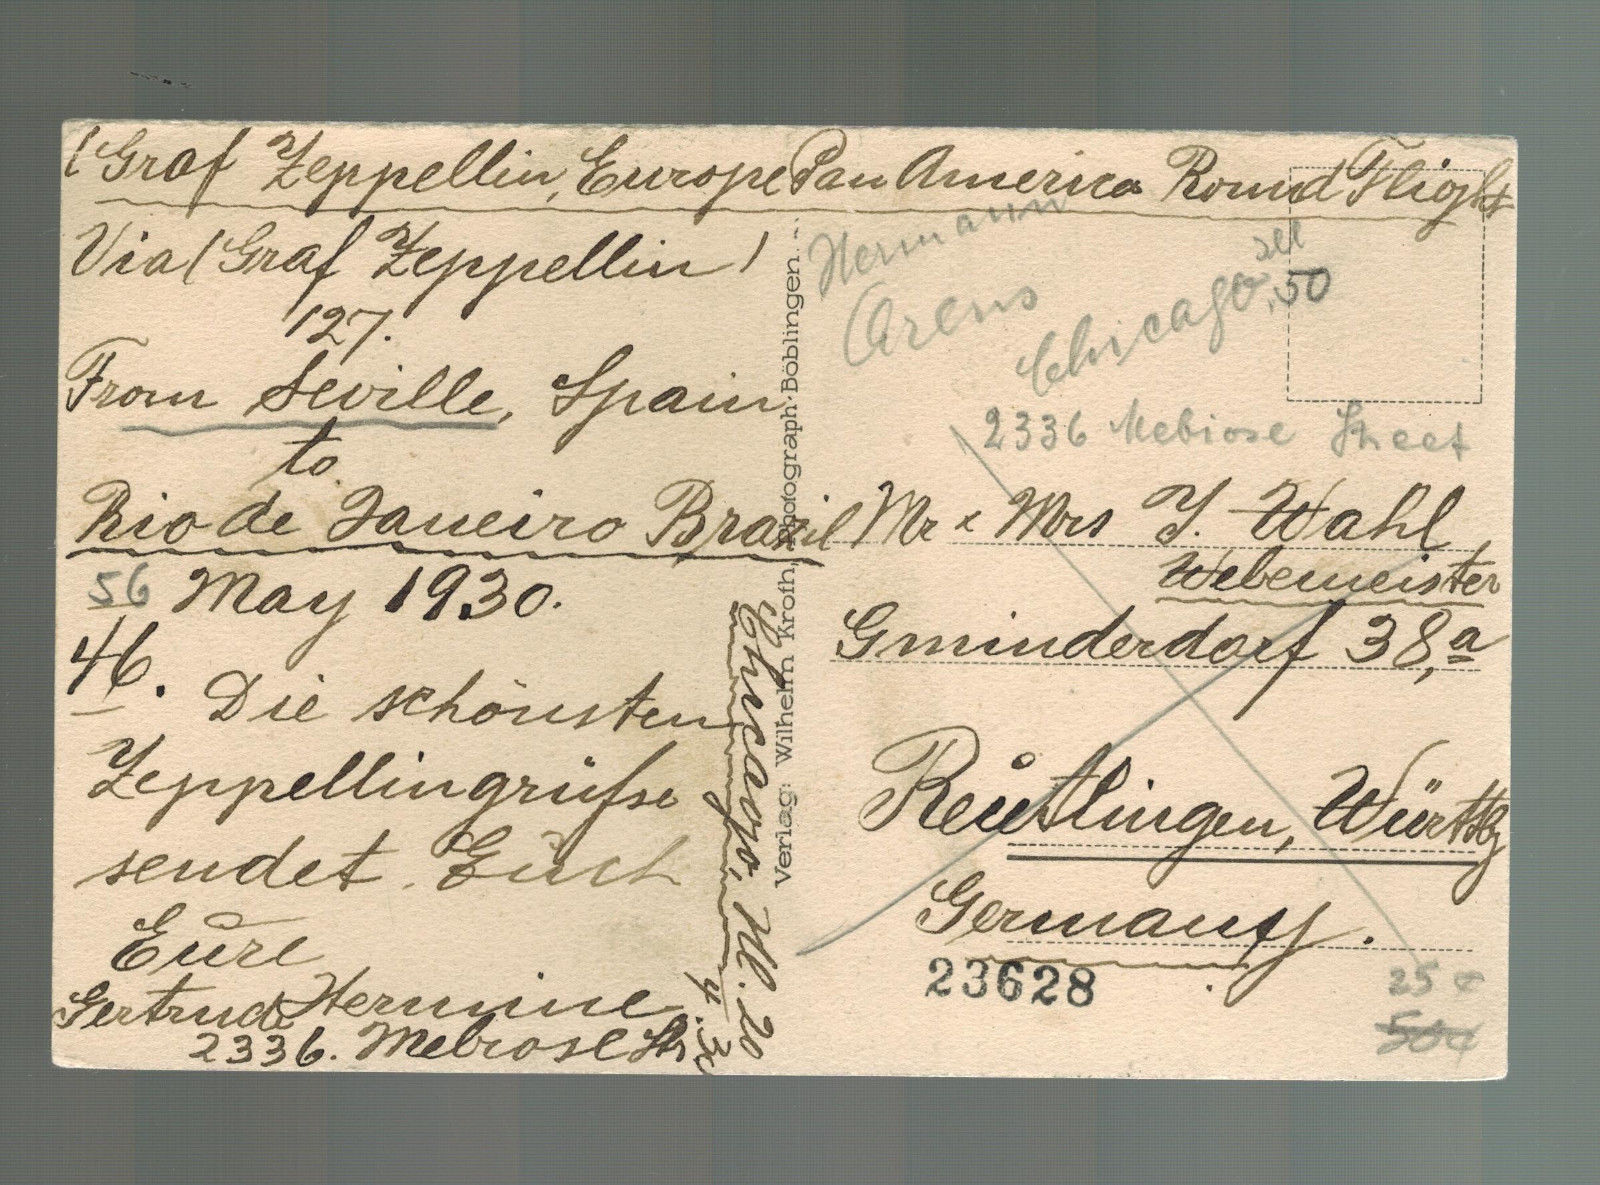 (Graf Zeppellin, Europe Pan America Round Flight
Via (Graf Zeppellin)
127.
From Seville, Spain
to
Rio de Janeiro Brazil
56 May 1930.
46.
Die schönsten
Zeppellingrüsse
sendet Euch
Eure
Gertrude Hermine
2336. Melrose Str
Chicago, Ill. 20
4. 30
Verlag: Wilhelm Kroth, Photograph-Böblingen.
Hermann
Arens
Chicago
.50
2336 Mebrose Street
Mr & Mrs J. Wahl
Webemeister
Gminderdorf 38,a
Reutlingen, Württbg
Germany.
23628
25 ¢
50¢